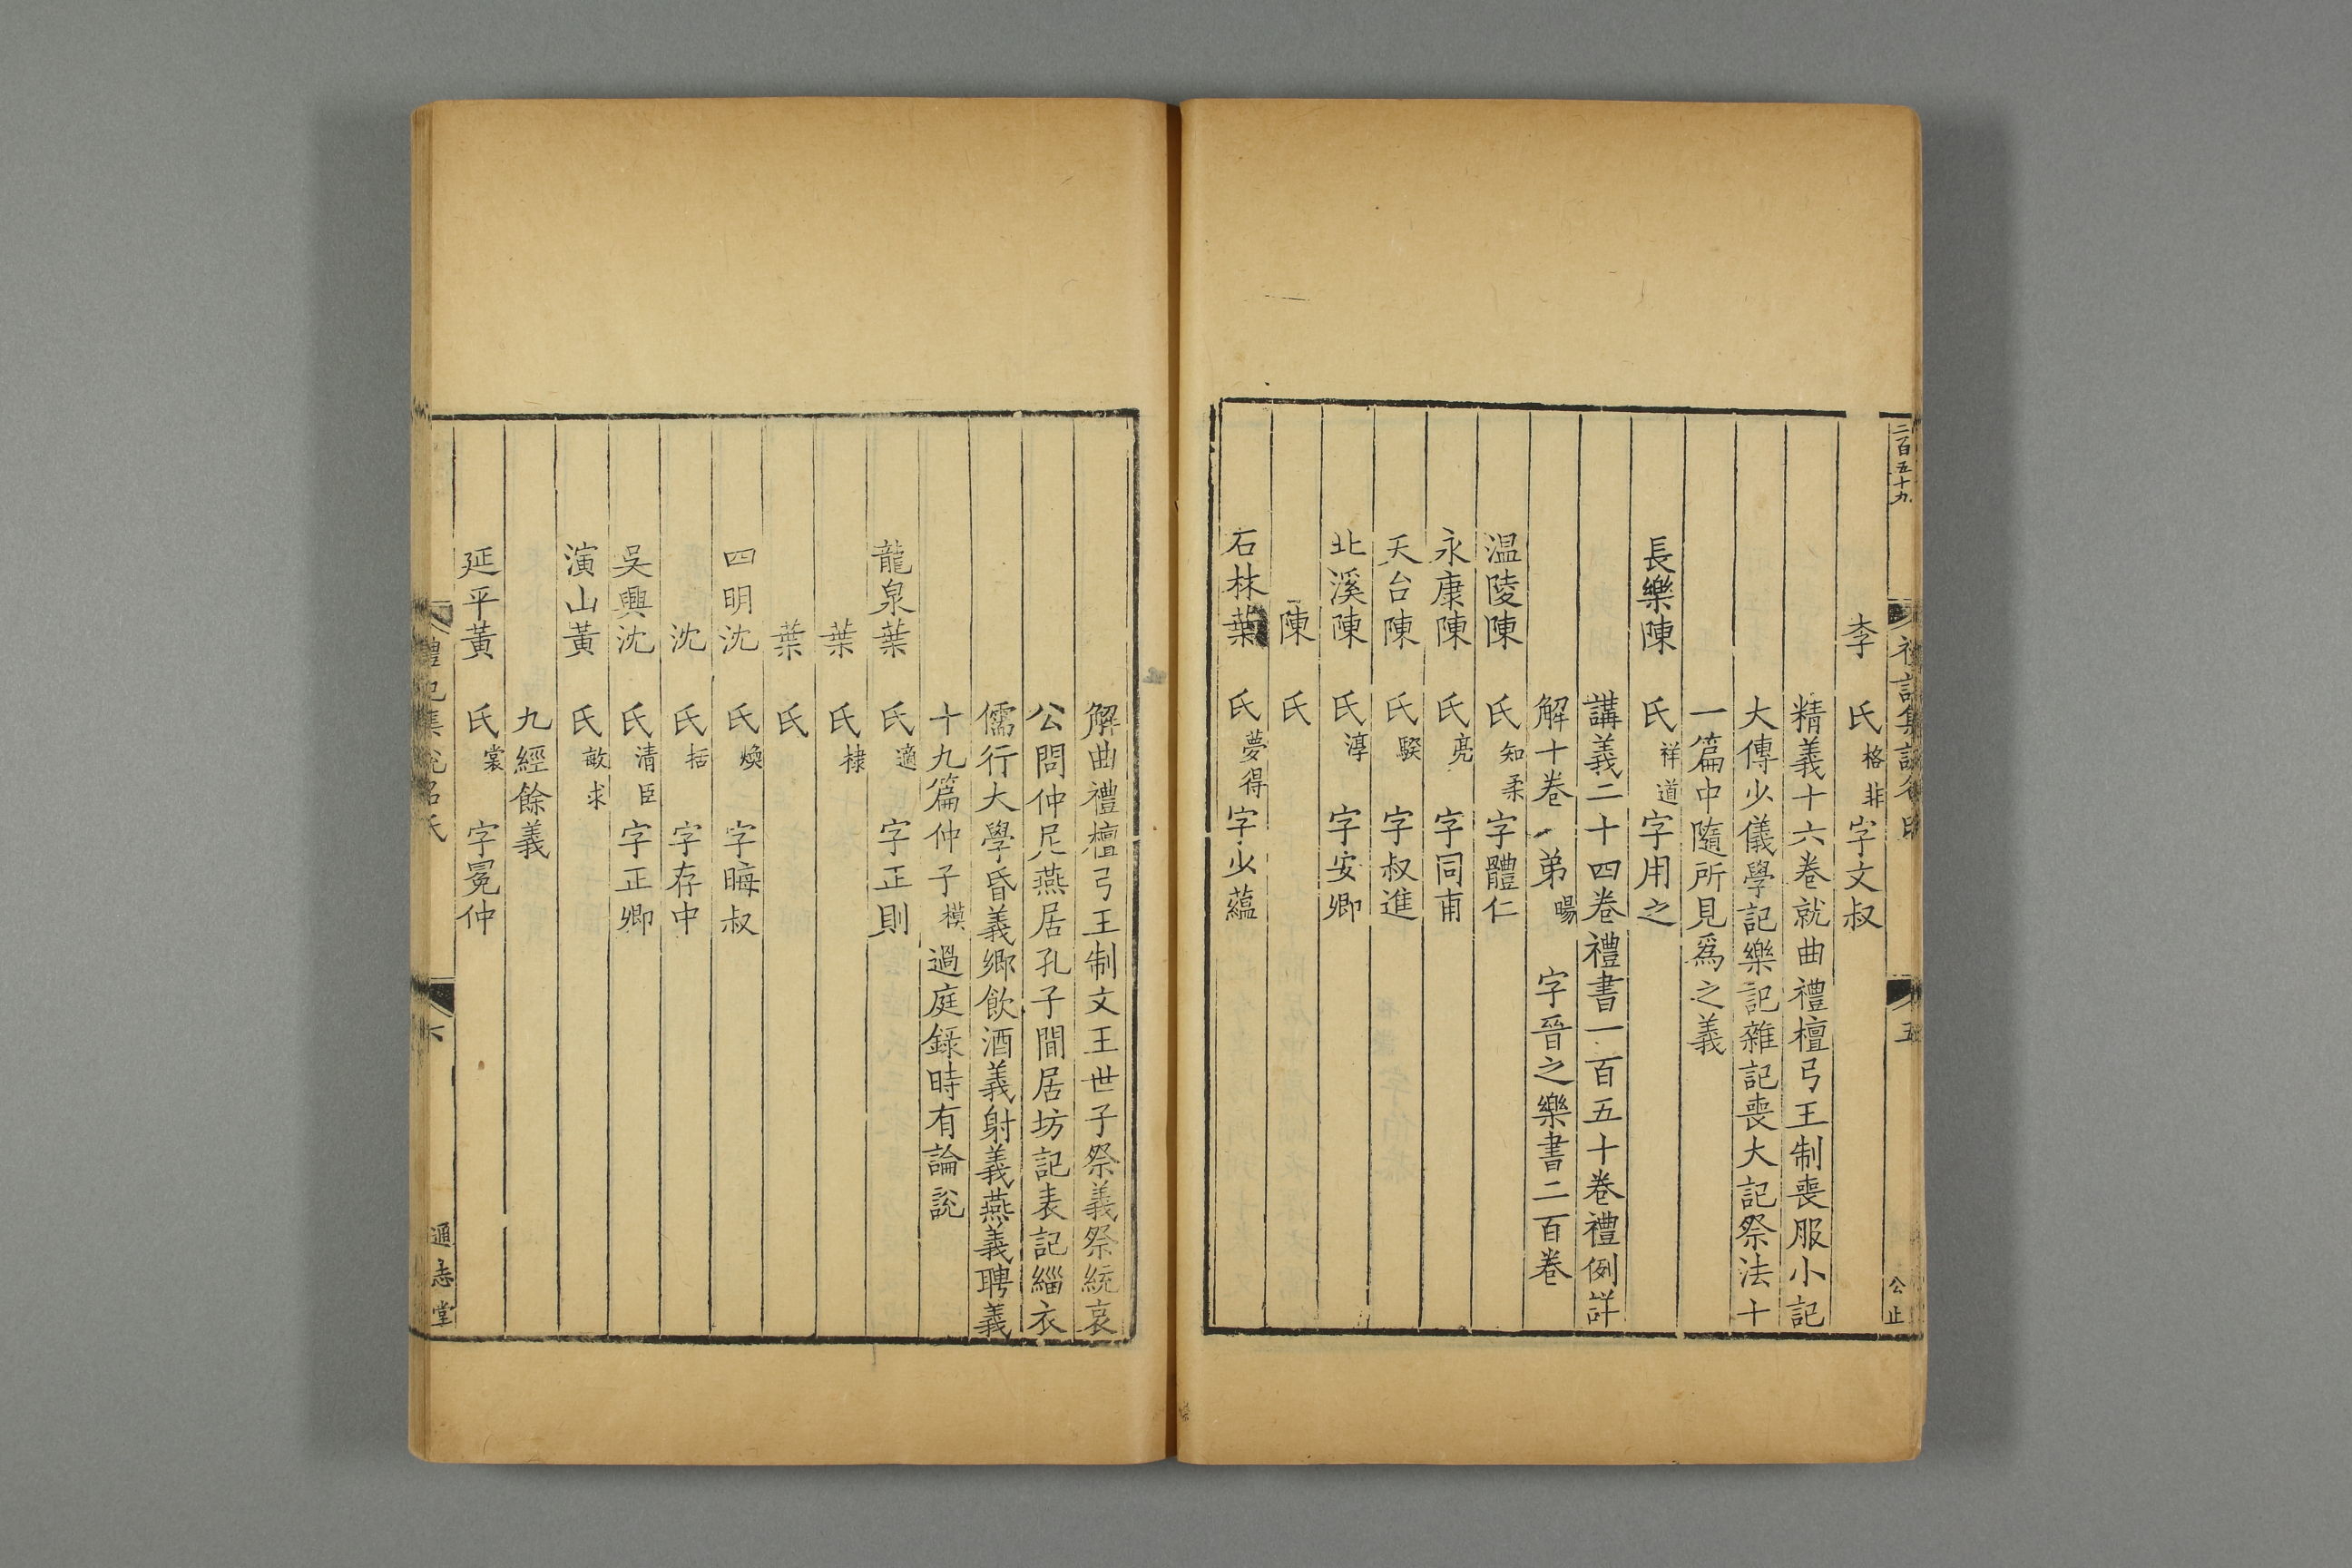 二百五十九
五
公止
李 氏格非字文叔
精義十六卷就曲禮檀弓王制喪服小記
大傳少儀學記樂記雜記喪大記祭法十
一篇中隨所見爲之義
長樂陳 氏祥道字用之
講義二十四卷禮書一百五十卷禮例詳
解十卷 弟暘 字晉之樂書二百卷
温陵陳 氏知柔字體仁
永康陳 氏亮 字同甫
天台陳 氏騤 字叔進
北溪陳 氏淳 字安卿
陳 氏
石林葉 氏夢得字少蘊
解曲禮檀弓王制文王世子祭義祭統哀
公問仲尼燕居孔子閒居坊記表記緇衣
儒行大學昏義鄉飲酒義射義燕義聘義
十九篇仲子模過庭錄時有論說
龍泉葉 氏適 字正則
葉 氏棣
葉 氏
四明沈 氏煥 字晦叔
沈 氏括 字存中
吳興沈 氏清臣字正卿
演山黃 氏敏求
九經餘義
延平黃 氏裳 字冕仲
禮記集說名氏 六 通志堂